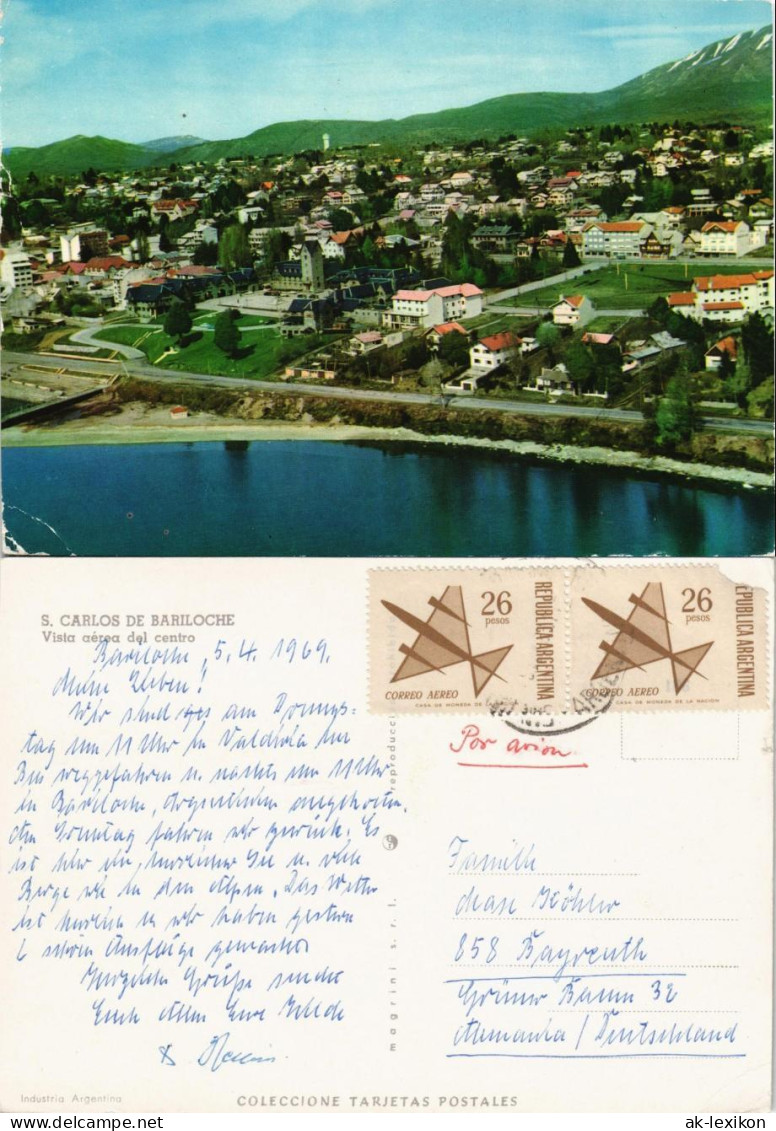 S. CARLOS DE BARILOCHE
Vista aérea del centro
Bariloche, 5.4.1969.
Meine Lieben!
Wir sind am Donners-
tag um 11 Uhr in Valdivia im
Bus weggefahren u. nachts um 11 Uhr
in Bariloche, Argentinien angekommen.
Am Sonntag fahren wir zurück. Es
ist hier ein herrlicher See u. viele
Berge wie in den Alpen. Das Wetter
ist herrlich u. wir haben gestern
schon Ausflüge gemacht
Herzliche Grüße sendet
Euch allen Eure Hilde
&
REPUBLICA ARGENTINA
26
pesos
CORREO AEREO
CASA DE MONEDA DE
REPUBLICA ARGENTINA
26
pesos
CORREO AEREO
CASA DE MONEDA DE LA NACION
Por avion
Familie
Max Köhler
858 Bayreuth
Grüner Baum 32
Alemania / Deutschland
magrini s.r.l.
Industria Argentina
COLECCIONE TARJETAS POSTALES
ak-lexikon